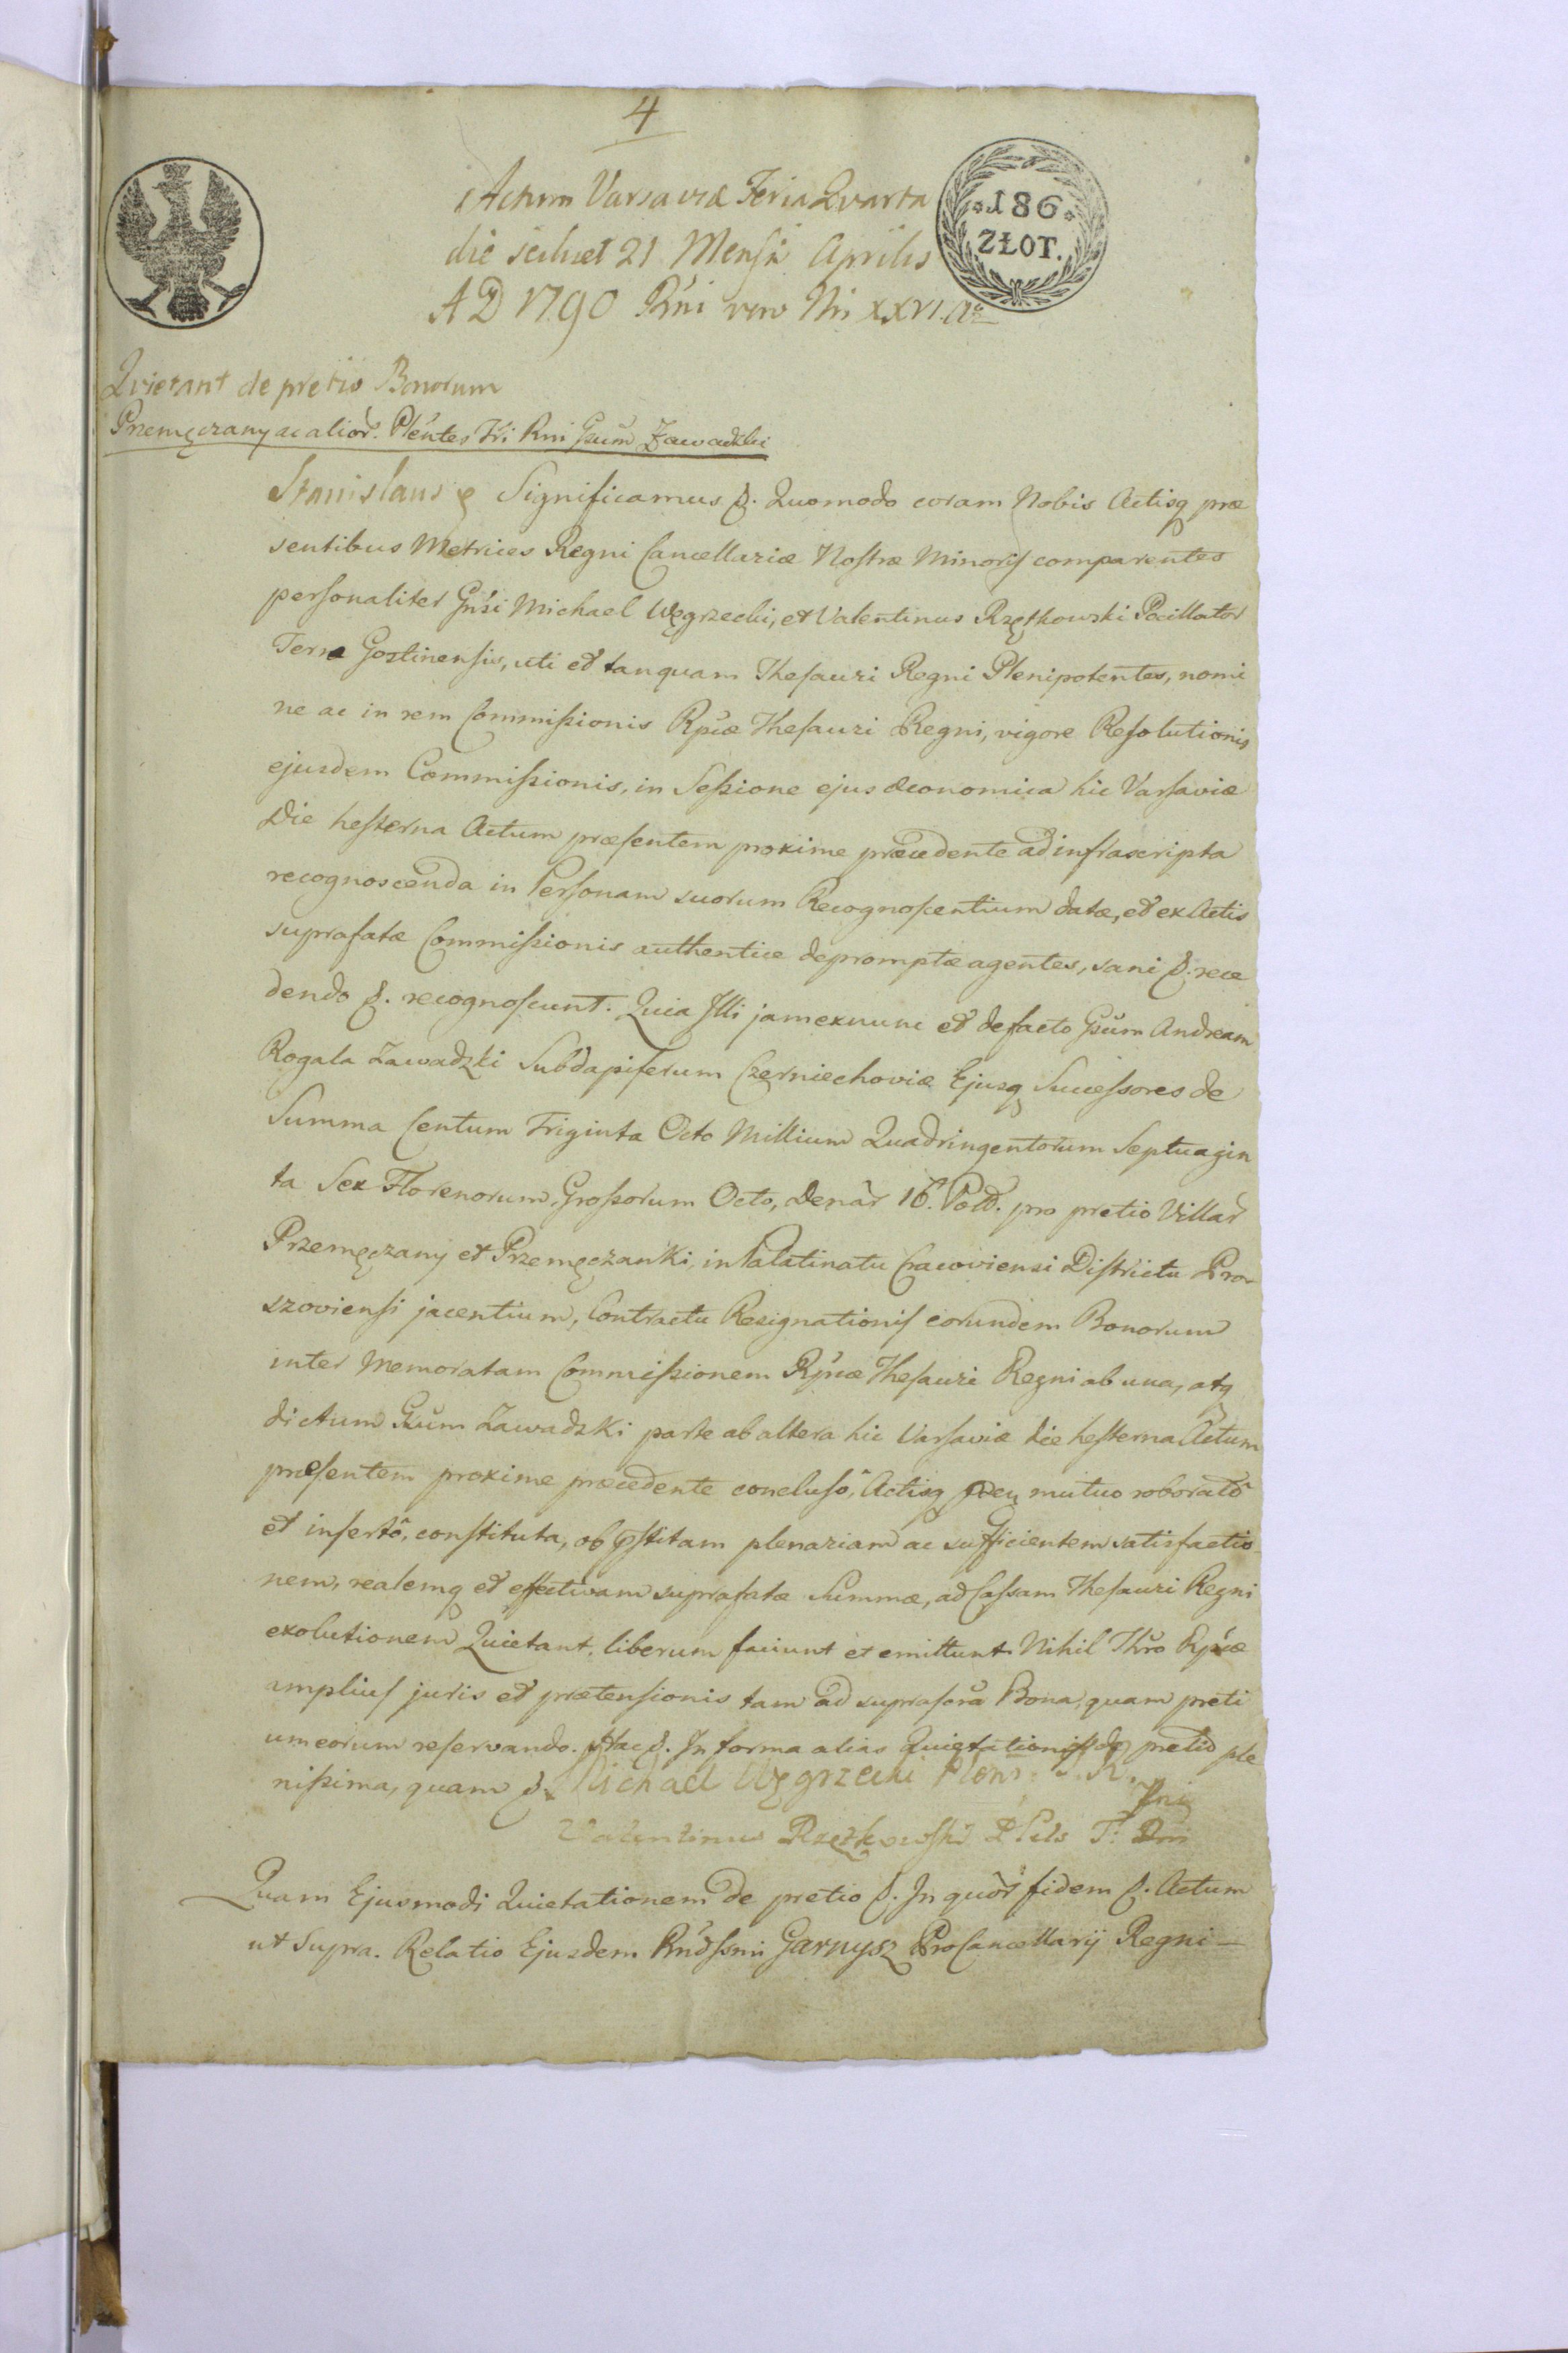 4
Actum Varsaviæ Feria Qvarta
die scilicet 21 Mensis Aprilis
A D 1790 Rńi vero Nri XXVI. Aº
186
ZŁOT.
Qvietant de pretio Bonorum
Przemęczany ac alior. Pleńtes Tri Rni Gsum Zawadzki
Stanislaus & Significamus &. Quomodo coram Nobis Actisq præ
sentibus Metrices Regni Cancellariæ Nostræ Minoris comparentes
personaliter Gnsi Michael Węgrzecki, et Valentinus Rzętkowski Pocillator
Terræ Gostinensis, uti et tanquam Thesauri Regni Plenipotentes, nomi
ne ac in rem Commissionis Rpcæ Thesauri Regni, vigore Resolutionis
ejusdem Commissionis, in Sessione ejus æconomica hic Varsaviæ
Die hesterna Actum præsentem proxime præcedente ad infrascripta
recognoscenda in Personam suorum Recognoscentium datæ, et ex Actis
suprafatæ Commissionis authentice depromptæ agentes, sani &. rece
dendo &. recognoscunt. Quia Illi jam exnunc et defacto Gsum Andream
Rogala Zawadzki Subdapiferum Czerniechoviæ Ejusq Successores de
Summa Centum Triginta Octo Millium Quadringentorum Septuagin
ta Sex Florenorum, Grossorum Octo, Denar 16. Pold. pro pretio Villar
Przemęczany et Przemęczanki, in Palatinatu Cracoviensi Districtu Pro-
szoviensi jacentium, Contractu Resignationis eorundem Bonorum
inter Memoratam Commissionem Rpcæ Thesauri Regni ab una, atq
dictum Gsum Zawadzki parte ab altera hic Varsaviæ die hesterna Actum
præsentem proxime præcedente conclusô, Actisq mutuo roboratô
et insertô, constituta, ob pstitam plenariam ac sufficientem satisfactio-
nem, realemq et effectivam suprafatæ Summæ, ad Cassam Thesauri Regni
exolutionem Quietant, liberum faciunt et emittunt. Nihil Thro Rpcæ
amplius juris et prætensionis tam ad suprafata Bona, quam preti
um eorum reservando. Hac &. In forma alias Quietationis de pretio ple
nissima, quam &. Michael Węgrzecki Plens. T. R.
Valentinus Rzętkowski Plets T: Rni
Quam Ejusmodi Quietationem de pretio &. In quor fidem &. Actum
ut Supra. Relatio Ejusdem Rndssmi Garnysz ProCancellarij Regni –